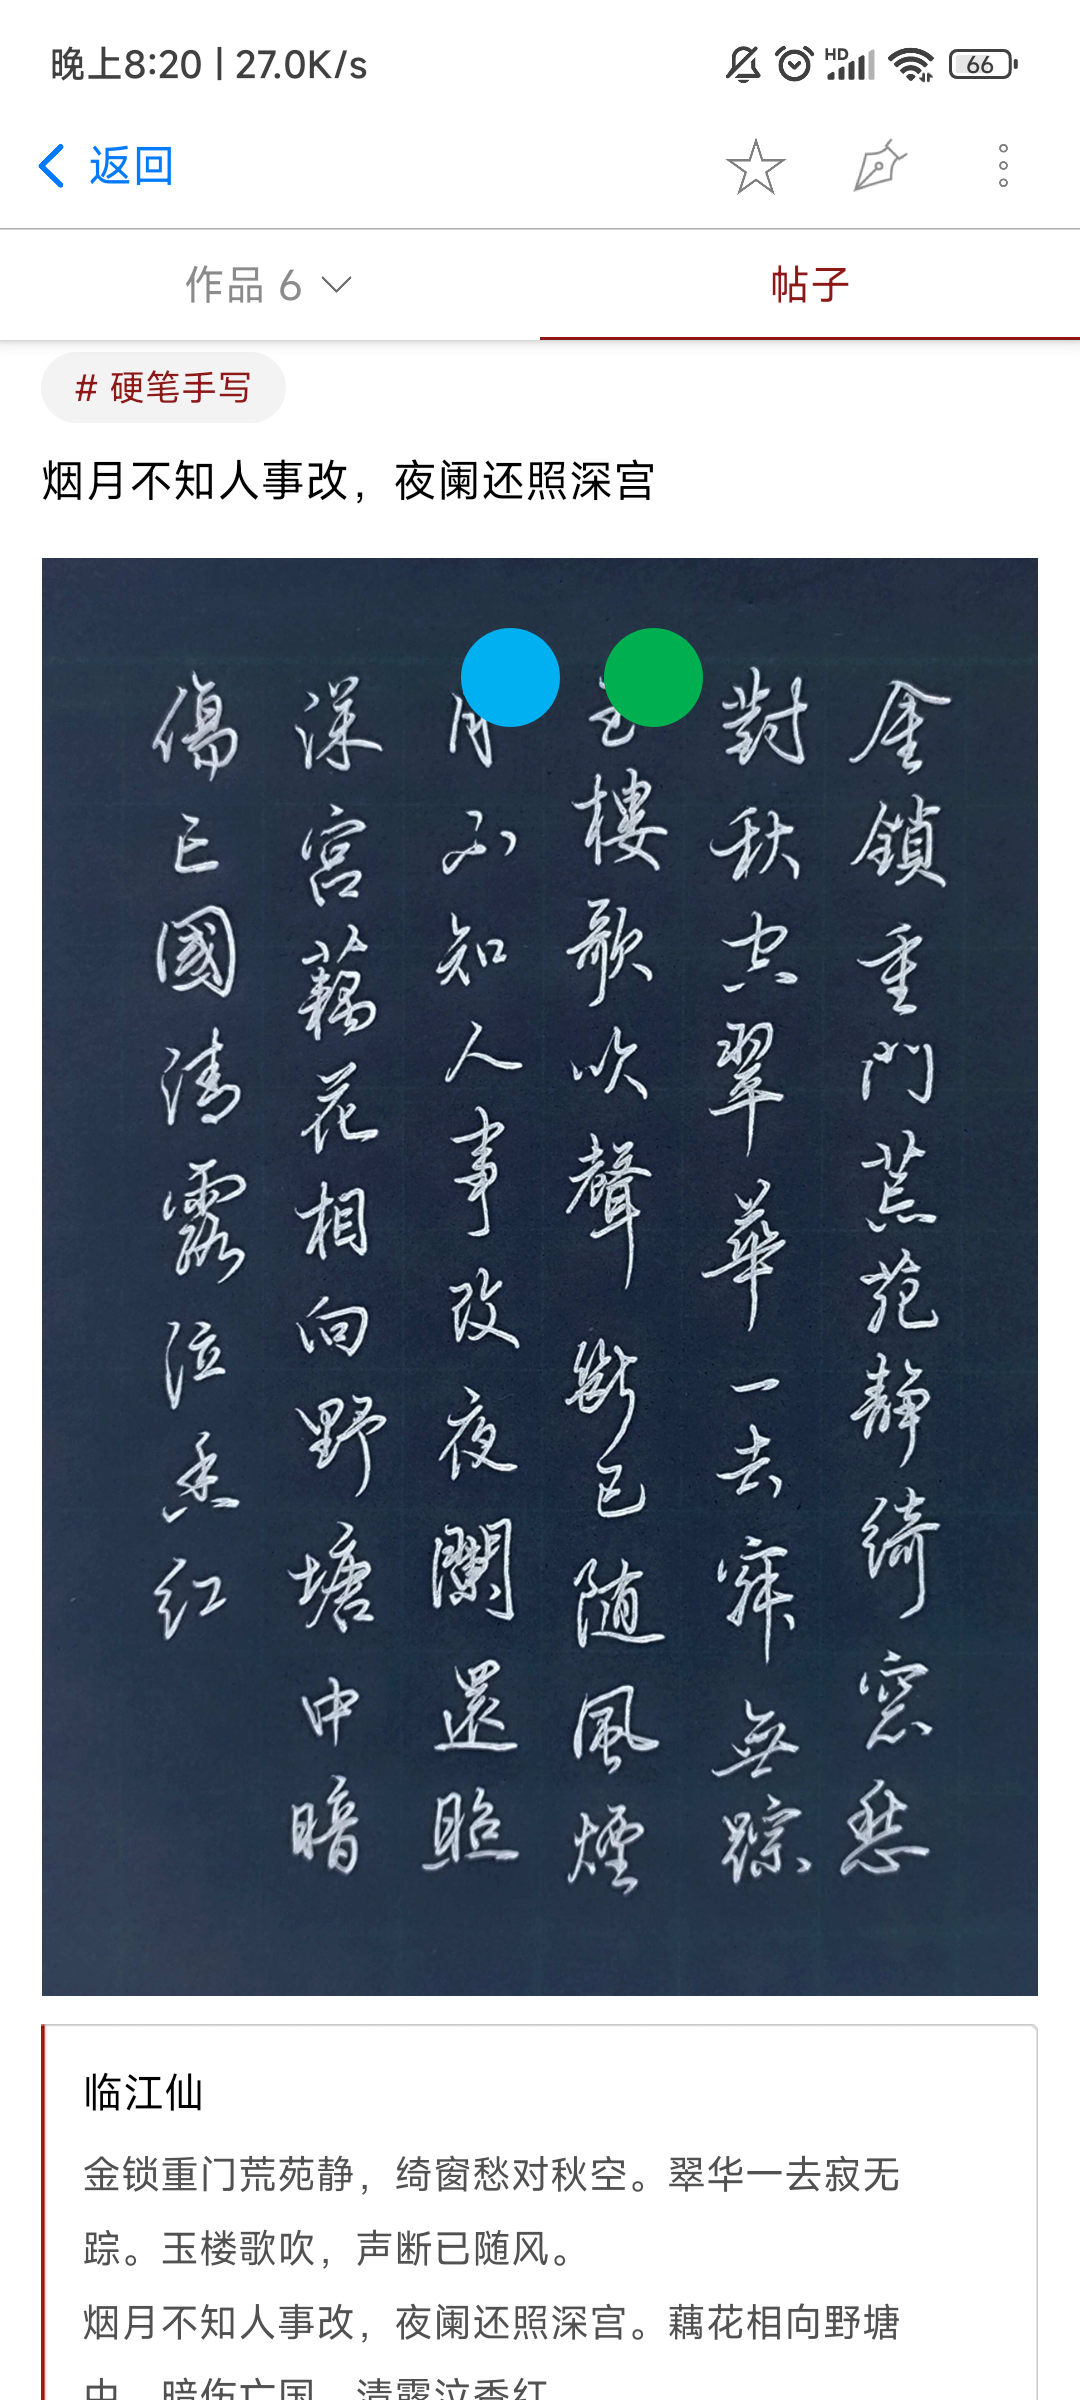 晚上8:20 | 27.0K/s
HD
66
返回
作品 6
帖子
# 硬笔手写
烟月不知人事改，夜阑还照深宫
金鎖重門荒苑靜綺窓愁
對秋空翠華一去寂無踪
樓歌吹聲斷已随風煙
月不知人事改夜闌還照
深宮藕花相向野塘中暗
傷亡國清露泣香紅
临江仙
金锁重门荒苑静，绮窗愁对秋空。翠华一去寂无
踪。玉楼歌吹，声断已随风。
烟月不知人事改，夜阑还照深宫。藕花相向野塘
中，暗伤亡国，清露泣香红